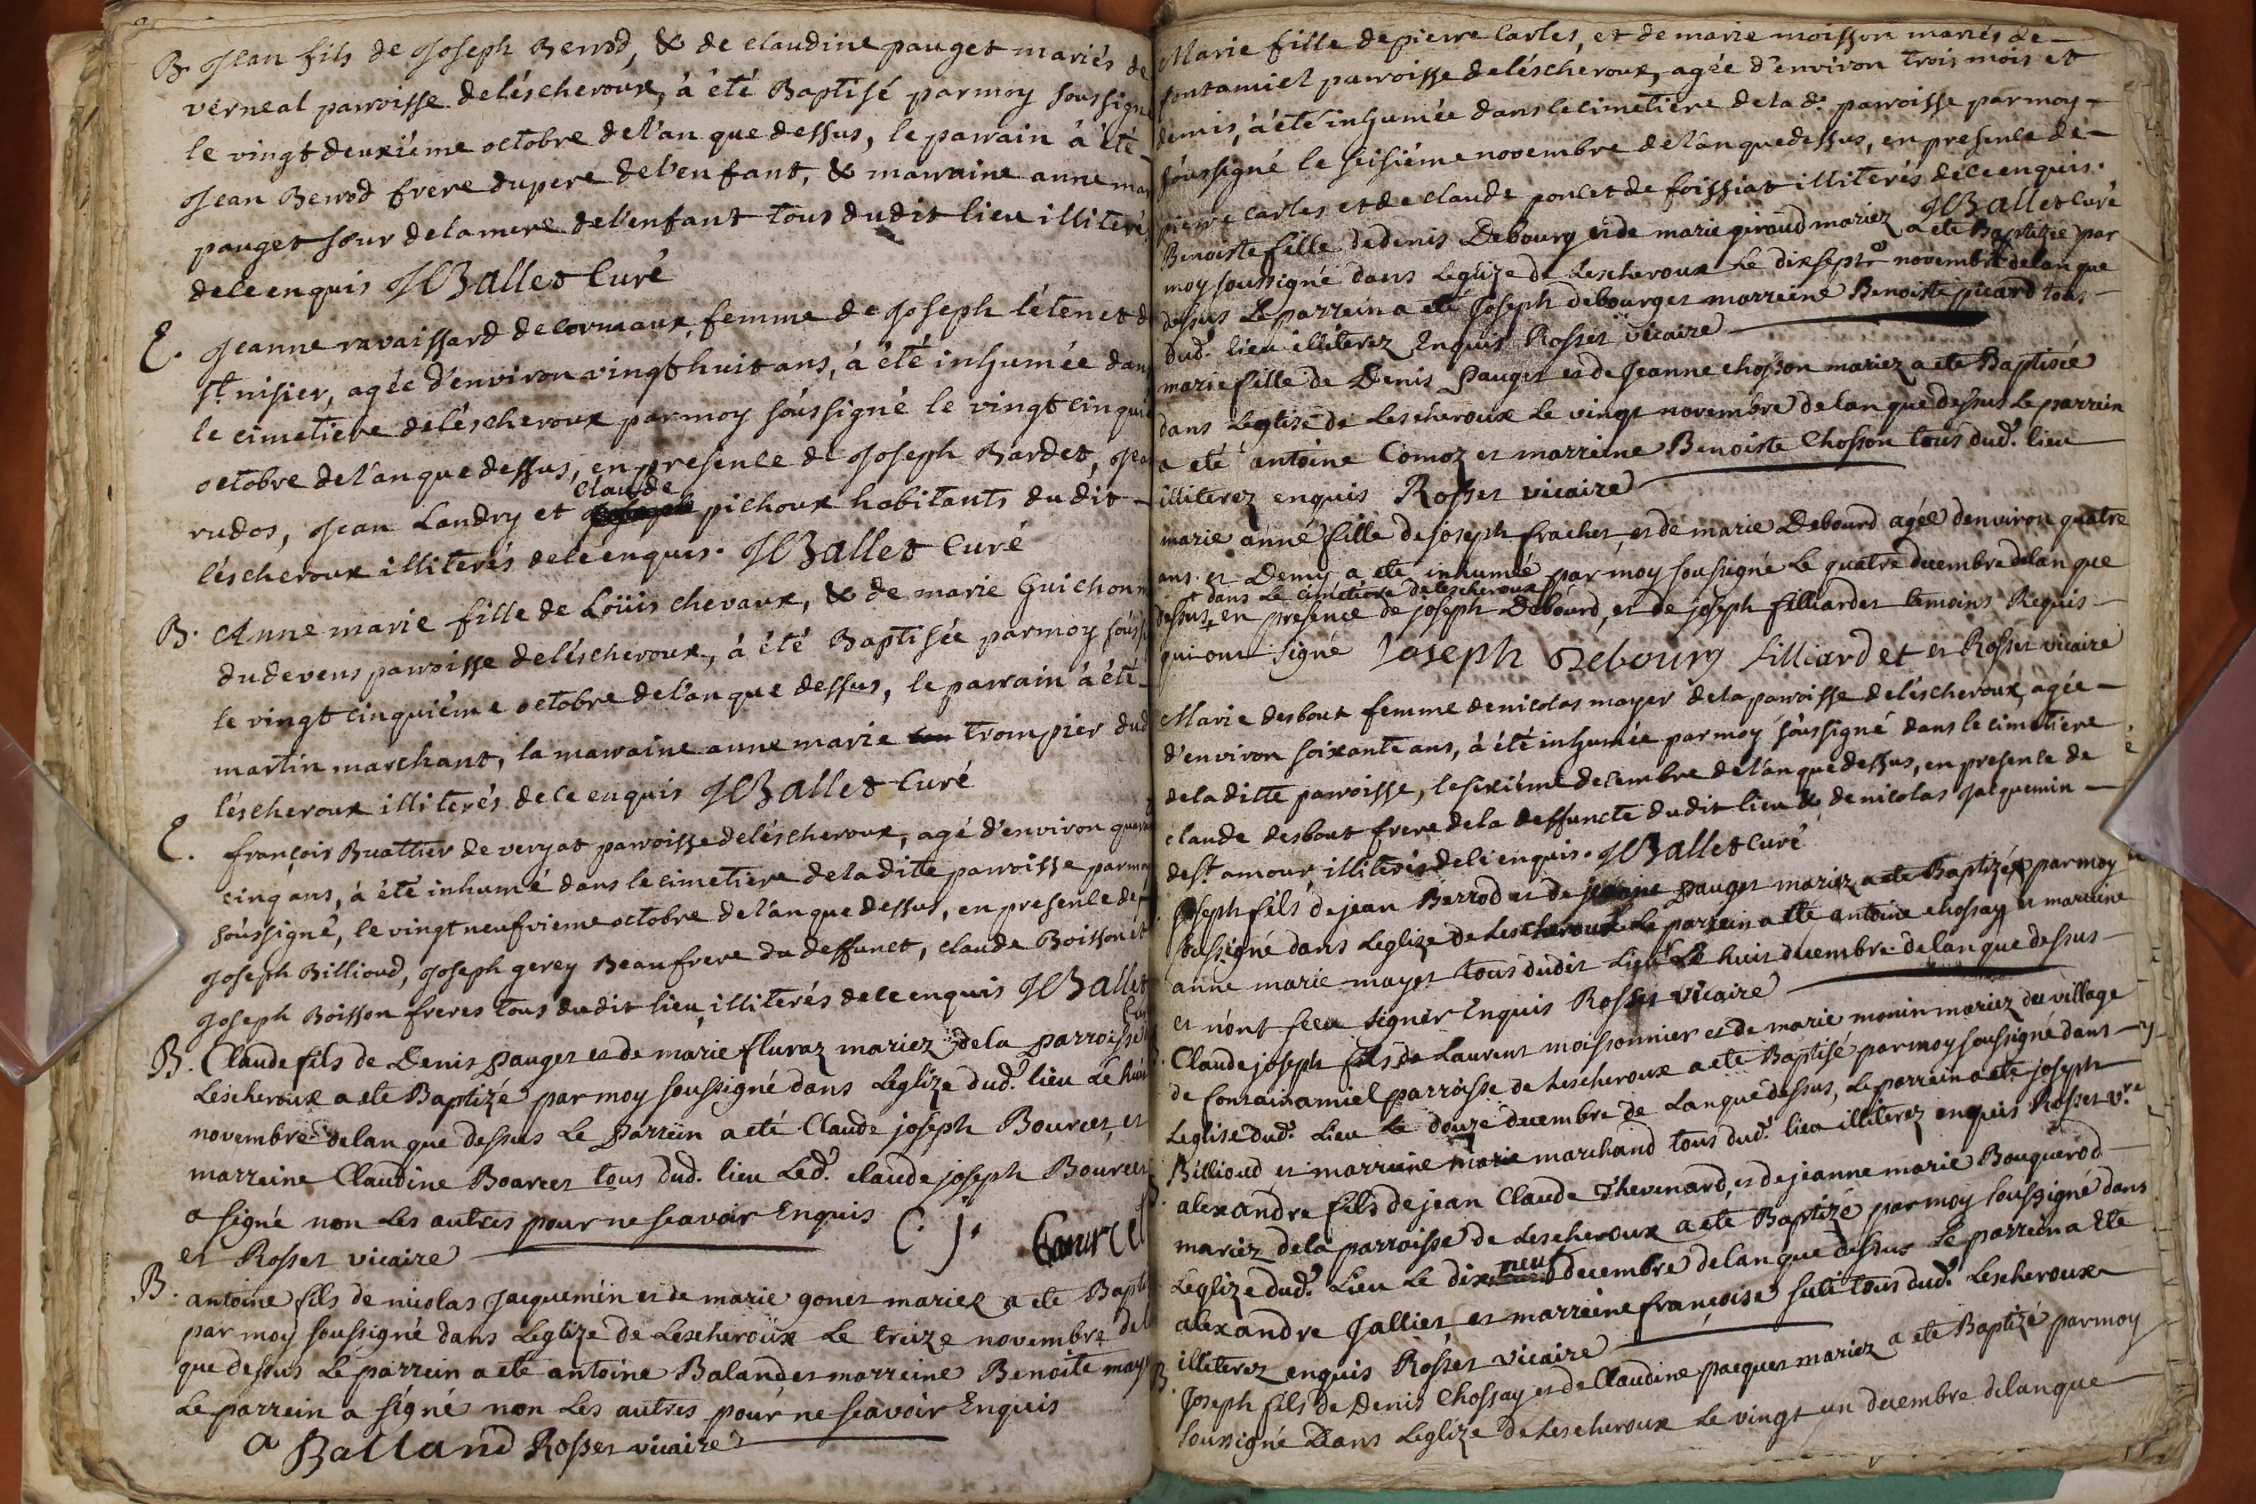 B. Jean fils de Joseph Berrod, & de claudine pauget mariés de
verneal parroisse deléscheroux, à été Baptisé parmoy soussigné
le vingt deuxiéme octobre del'an que dessus, le parrain à été
Jean Berrod frere dupere del'enfant, & marraine anne mar
pauget sœur delamere del'enfant tous dudit lieu illiterés
dece enquis JCBallet Curé
E. Jeanne ravaissard de cormaux femme de Joseph létenet d
St. nisier, agée d'environ vingt huit ans, à été inhumée dans
le cimetiere deléscheroux parmoy sóussigné le vingt cinqui
octobre del'anquedessus, en presence de Joseph Bardet, Jean
rudos, Jean Landry et claude pichoux habitants dudit
léscheroux illiterés dece enquis. JCBallet Curé
B. Anne marie fille de Loüis chevaux, & de marie Guichon
dudevens parroisse deléscheroux, à été Baptisée parmoy sóuss
le vingt cinquiéme octobre del'anque dessus, le parrain à été
martin marchant, la marraine anne marie trompier dud
léscheroux illiterés dece enquis JCBallet Curé
E. françois Buattier de veryat parroisse deléscheroux, agé d'environ quar
cinq ans, à été inhumé dans lecimetiere deladite parroisse parmo
sóussigné, le vingt neufvieme octobre del'anque dessus, en presence de
Joseph Billioud, Joseph gerey Beaufrere du deffunct, claude Boisson et
Joseph Boisson freres tous dudit lieu illiterés dece enquis JCBallet
Curé
B. Claude fils de Denis pauget et de marie fluraz mariez de la parroisse
Lescheroux a ete Baptizé par moy soussigné dans Leglize dud. lieu Le huit
novembre delan que dessus Le parrein a eté Claude joseph Bourcet, et
marreine Claudine Bourcet tous dud. lieu Led. claude joseph Bourcet
a signé non Les autres pour ne seavoir Enquis C. J. Bourcet
et Rosset vicaire
B. antoine fils de nicolas Jacquemin et de marie gonet mariez a ete Bapti
par moy soussigné dans Leglize de Lescheroux Le treize novembre del
que dessus Le parrein a eté antoine Baland et marreine Benoite may
Le parrein a signé non Les autres pour ne seavoir Enquis
a Balland Rosset vicaire
Marie fille de pierre Carles, et de marie moisson mariés de
fontamiel parroisse deléscheroux, agée d'environ trois mois et
demis, à été inhumée dans lecimetiere delad. parroisse parmoy
sóussigné le seisiéme novembre del'anquedessus, en presence de
pierre Carles et de claude poncet de foissiat illiterés dece enquis.
JCBallet Curé
Benoiste fille de denis Debourg et de marie giraud mariez a ete Baptizée par
moy soussigné dans Leglize de Lescheroux Le dixsept novembre delan que
dessus Le parrein a eté Joseph debourg et marreine Benoiste picard tous
dud. lieu illiterez Enquis Rosset vicaire
marie fille de Denis Pauget et de Jeanne chosson mariez a ete Baptisée
dans Leglise de Lescheroux Le vingt novembre delan que dessus Le parrein
a eté antoine Comoz et marreine Benoiste Chosson tous dud. lieu
illiterez enquis Rosset vicaire
marie anné fille de joseph frachet, et de marie Debourd agée denviron quatre
ans et Demy a ete inhumée par moy soussigné Le quatre decembre delan que
et dans Le cimetiere de lescheroux
dessus en presence de joseph Debourd, et de joseph filliardet temoins Requis
qui ont signé Joseph Debourg filliardet et Rosset vicaire
Marie desbout femme de nicolas mayer dela parroisse deléscheroux, agée
d'environ soixante ans, à été inhumée par moy sóussigné dans le cimetiere
deladitte parroisse, le sixiéme decembre del'anquedessus, en presence de
claude desbout frere dela deffuncte dudit lieu & de nicolas Jacquemin
de St. amour illiterés dece enquis. JCBallet Curé
Joseph fils de jean Berrod et de jeanne pauget mariez a ete Baptizé par moy
soussigné dans Leglize de Lescheroux Le parrein a ete antoine chossay et mareine
anne marie mayet tous dudit Lieu Le huit decembre delan que dessus
et n'ont sceu signer Enquis Rosset vicaire
Claude joseph fils de Laurent moissonnier et de marie monin mariez du village
de fontainamiel parroisse de Lescheroux a ete Baptisé par moy soussigné dans
Leglise dud. Lieu Le douze decembre de Lan que dessus, Le parrein a ete joseph
Billioud et marreine marie marchand tous dud. lieu illiterez enquis Rosset v.re
alexandre fils de jean Claude Thevenard, et de jeanne marie Bouquerod
mariez dela parroisse de Lescheroux a ete Baptizé par moy soussigné dans
Leglize dud. Lieu Le dix neuf decembre delan que dessus Le parrein a Ete
alexandre Jalliet et marreine françoise suti tous dud. Lescheroux
illiterez enquis Rosset vicaire
B. Joseph fils de Denis Chossay et de Claudine pacquet mariez a ete Baptizé par moy
soussigné Dans Leglize de Lescheroux Le vingt un decembre delan que